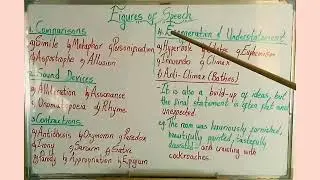 Figures of Speech
1. Comparisons
a) Simile b) Metaphor c) Personification
d) Aspostrophe e) Allusion
2. Sound Devices
a) Alliteration b) Assonance
c) Onomatopoeia d) Rhyme
3. Contractions
a) Antithesis b) Oxymoron c) Paradox
d) Irony e) Sarcasm f) Satire
g) Parody h) Appropriation i) Epigram
4. Exaggeration & Understatement
a) Hyperbole b) Litotes c) Euphemism
d) Innuendo e) Climax
f) Anti-Climax (Bathos)
- It is also a build-up of ideas, but
the final statement is often flat and
unexpected.
eg. The room was luxuriously furnished,
beautifully painted, tastefully
decorated and crawling with
cockroaches.